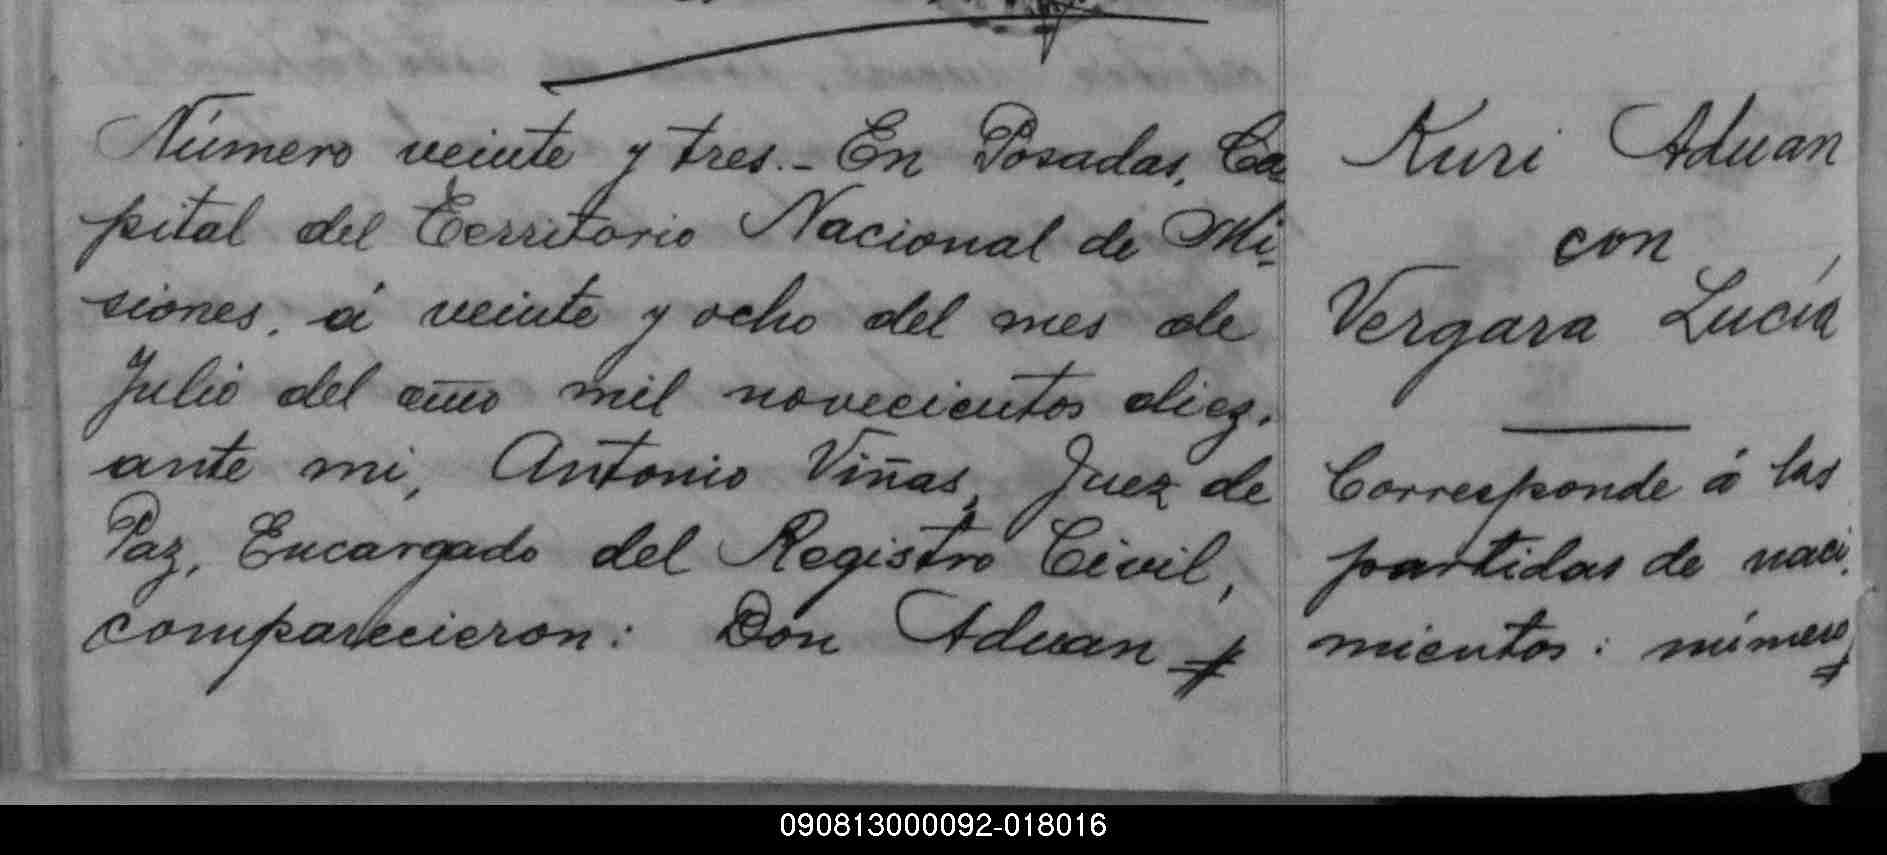 Número veinte y tres.- En Posadas, Ca
pital del Territorio Nacional de Mi-
siones, á veinte y ocho del mes de
Julio del año mil novecientos diez,
ante mi, Antonio Viñas, Juez de
Paz, Encargado del Registro Civil,
comparecieron: Don Aduan
Kuri Aduan
con
Vergara Lucía
Corresponde á las
partidas de naci-
mientos: número
090813000092-018016